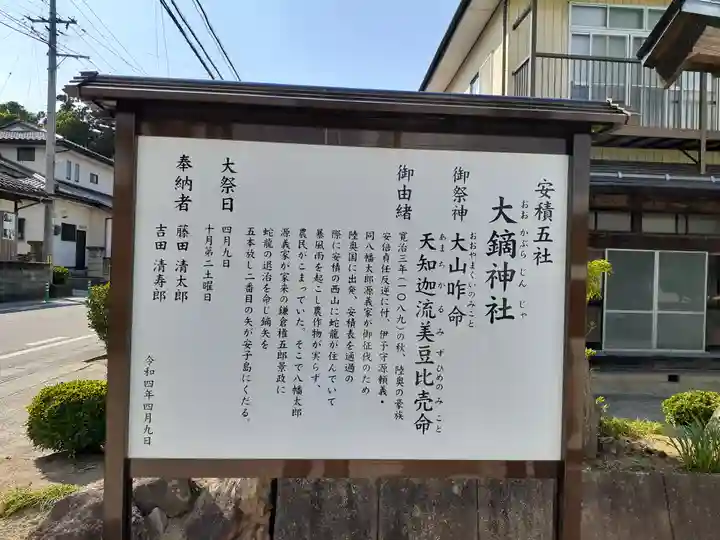 安積五社
大鏑神社
おおかぶらじんじゃ
御祭神 大山咋命
おおやまくいのみこと
天知迦流美豆比売命
あまちかるみずひめのみこと
御由緒
寛治三年(一〇八九)の秋、陸奥の豪族
安倍貞任反逆に付、伊予守源頼義・
同八幡太郎源義家が御征伐のため
陸奥国に出発、安積表を通過の
際に安積の西山に蛇龍が住んでいて
暴風雨を起こし農作物が実らず、
農民がこまっていた。そこで八幡太郎
源義家が家来の鎌倉権五郎景政に
蛇龍の退治を命じ鏑矢を
五本放し二番目の矢が安子島にくだる。
大祭日 四月九日
十月第二土曜日
奉納者 藤田清太郎
吉田清寿郎
令和四年四月九日